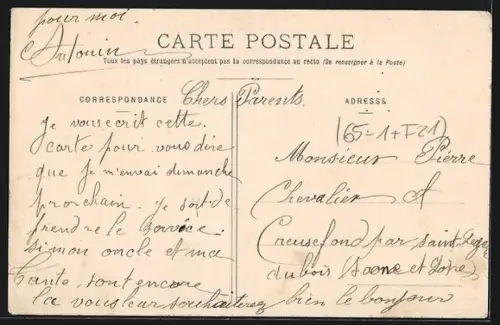 pour moi
Antonin
CARTE POSTALE
Tous les pays étrangers n'acceptent pas la correspondance au recto (Se renseigner à la Poste)
CORRESPONDANCE
Chers Parents
Je vous ecrit cette
carte pour vous dire
que Je m'envai dimanche
prorchain. Je sort de
prendre le service
simon oncle et ma
tante sont encore
la vous leur souhaiterez bien le bonjour
ADRESSE
(65-1+F21)
Monsieur Pierre
Chevalier A
Creusefond par saint Leger
dubois Saone et Loire